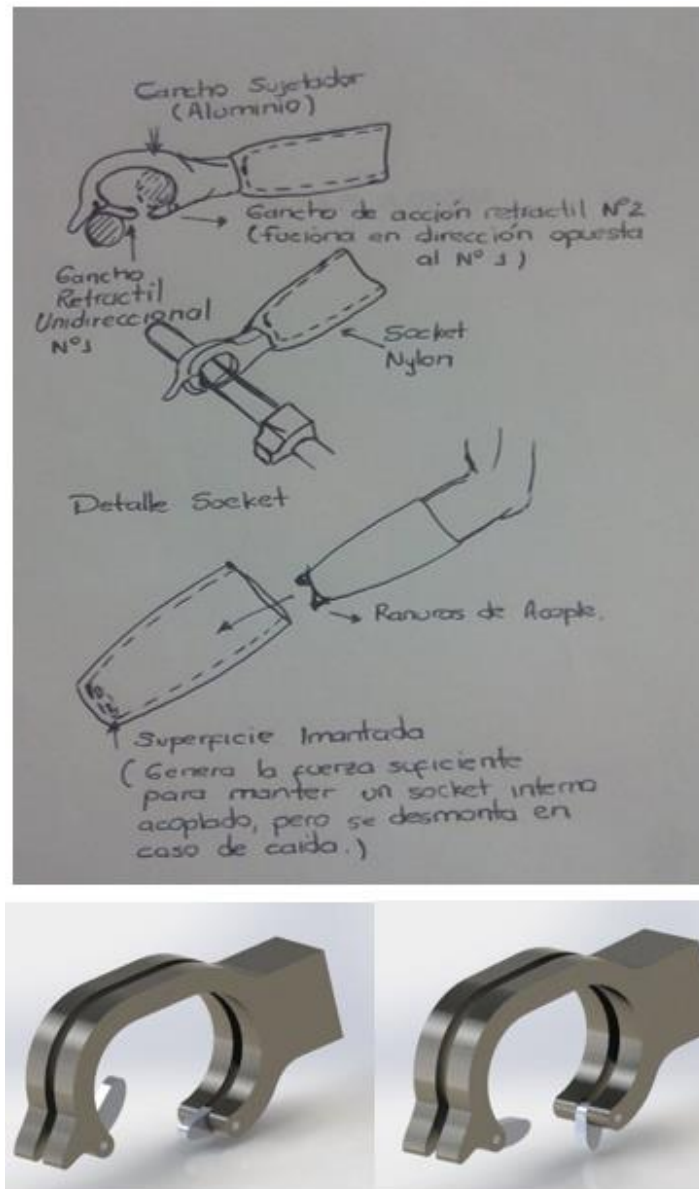 Gancho Sujetador
(Aluminio)
Gancho de acción retractil Nº2
(fuciona en dirección opuesta
al Nº 1)
Gancho
Retractil
Unidireccional
Nº1
Socket
Nylon
Detalle Socket
Ranuras de Acople.
Superficie Imantada
(Genera la fuerza suficiente
para manter un socket interno
acoplado, pero se desmonta en
caso de caida.)